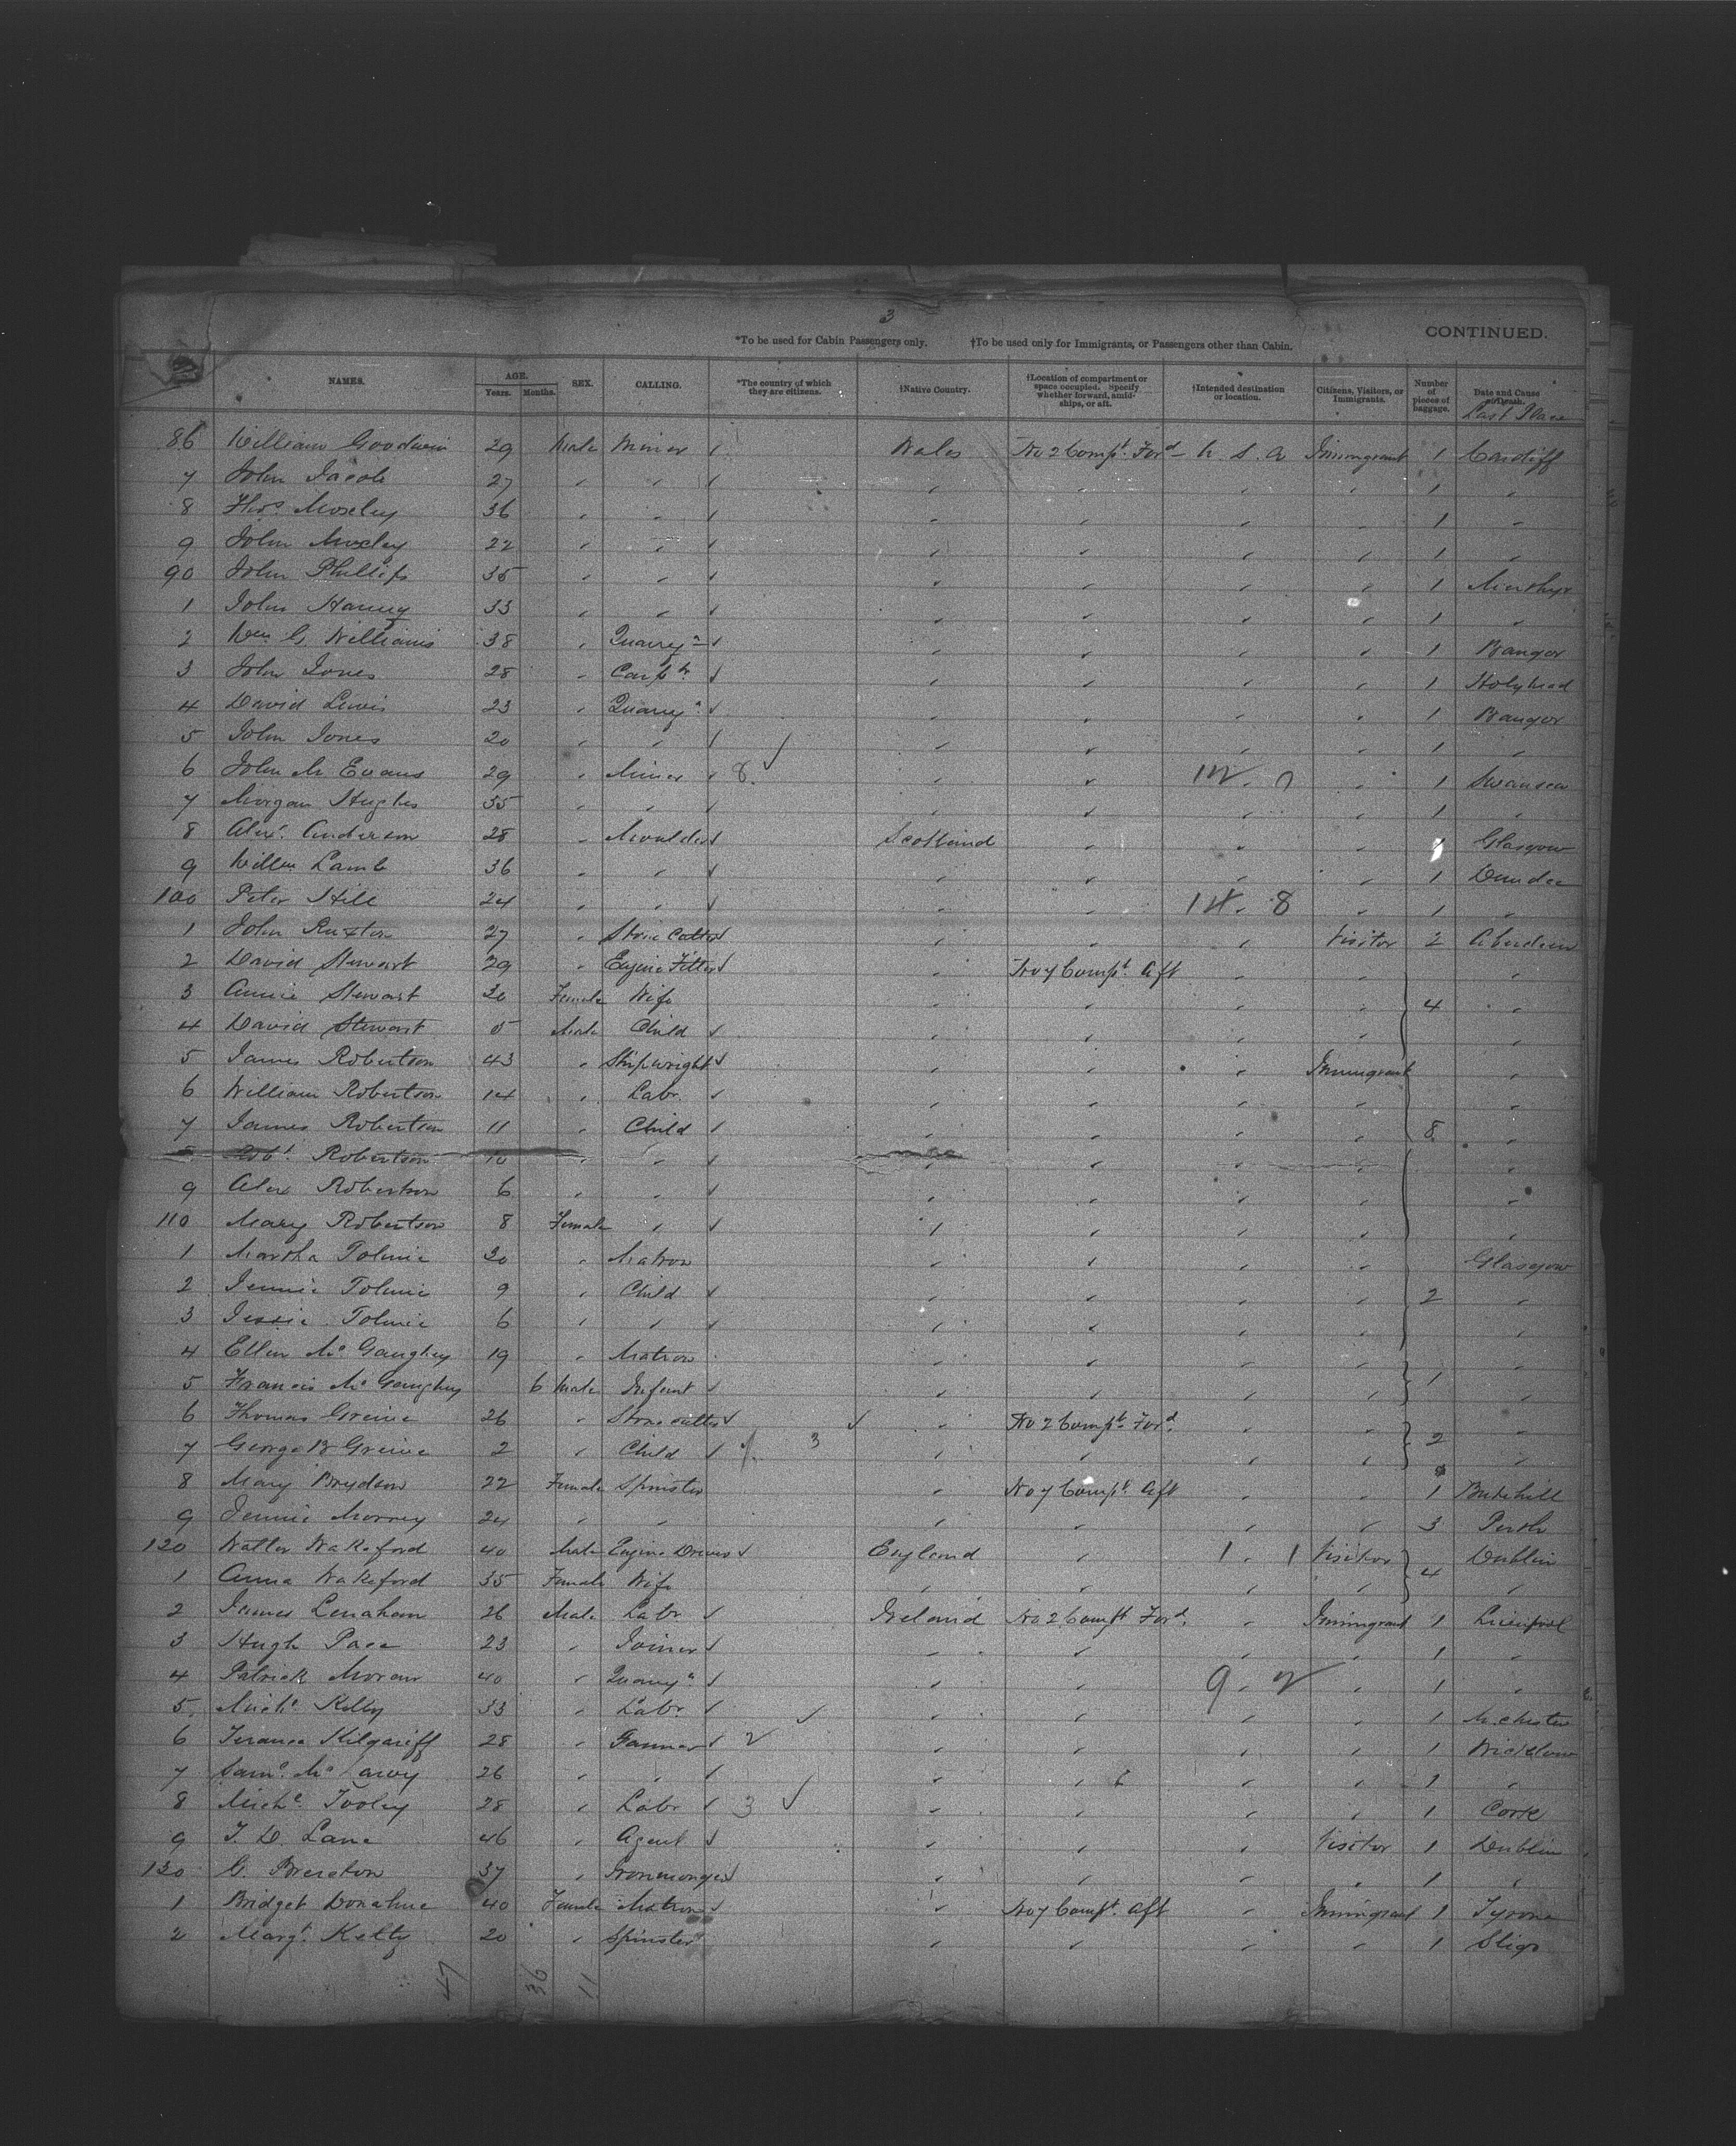 3
*To be used for Cabin Passengers only. †To be used only for Immigrants, or Passengers other than Cabin. CONTINUED.
NAMES. AGE. Years. Months. SEX. CALLING. *The country of which they are citizens. †Native Country. †Location of compartment or space occupied. Specify whether forward, amid-ships, or aft. †Intended destination or location. Citizens, Visitors, or Immigrants. Number of pieces of baggage. Date and Cause of Death.
Last Place
86 William Goodwin 29 Male Miner ✓ Wales No 2 Compt. Ford U. S. A Immigrant 1 Cardiff
7 John Jacob 27 " " ✓ " " " " 1 "
8 Thos. Moxley 36 " " ✓ " " " " 1 "
9 John Moxley 22 " " ✓ " " " " 1 "
90 John Phillips 35 " " ✓ " " " " 1 Merthyr
1 John Harvey 33 " " ✓ " " " " 1 "
2 Wm G. Williams 38 " Quarryn ✓ " " " " 1 Bangor
3 John Jones 28 " Carptr ✓ " " " " 1 Holyhead
4 David Lewis 23 " Quarryn ✓ " " " " 1 Bangor
5 John Jones 20 " " ✓ " " " " 1 "
6 John M Evans 29 " Miner ✓ 8. " " " " 1 Swansea
7 Morgan Hughes 35 " " ✓ " " " " 1 "
8 Alexr. Anderson 28 " Moulder ✓ Scotland " " " 1 Glasgow
9 Willm Lamb 36 " " ✓ " " " " 1 Dundee
100 Peter Hill 24 " " ✓ " " 14. 8 " 1 "
1 John Ruxton 27 " Stone Cutter ✓ " " " Visitor 2 Aberdeen
2 David Stewart 29 " Engine Fitter ✓ " No 7 Compt. Aft " " "
3 Annie Stewart 30 Female Wife " " " " 4 "
4 David Stewart 5 Male Child ✓ " " " " "
5 James Robertson 43 " Shipwright ✓ " " " Immigrant "
6 William Robertson 14 " Labr. ✓ " " " " "
7 James Robertson 11 " Child ✓ " " " " 8 "
8 Robt. Robertson 10 " " ✓ " " " " "
9 Alex Robertson 6 " " ✓ " " " " "
110 Mary Robertson 8 Female " ✓ " " " " "
1 Martha Tolmie 30 " Matron " " " " Glasgow
2 Jennie Tolmie 9 " Child ✓ " " " " 2 "
3 Jessie Tolmie 6 " " ✓ " " " " "
4 Ellen Mc Gaughey 19 " Matron " " " " "
5 Francis Mc Gaughey 6 Male Infant ✓ " " " " 1 "
6 Thomas Greive 26 " Stone cutter ✓ " No 2 Compt. Ford. " " "
7 George B Greive 2 " Child ✓ 3 " " " " 2 "
8 Mary Brydson 22 Female Spinster " No 7 Compt. Aft " " 1
9 Jennie Morrey 24 " " " " " " 3 Perth
120 Walter Wakeford 40 Male Engine Driver ✓ England " 1. 1 Visitor Dublin
1 Anna Wakeford 35 Female Wife " " " " 4 "
2 James Lenahan 26 Male Labr ✓ Ireland No 2 Compt Ford. " Immigrant 1 Liverpool
3 Hugh Pace 23 " Joiner ✓ " " " " 1 "
4 Patrick Moran 40 " Quarryn ✓ " " 9. 2 " 1 "
5 Michl. Kelly 33 " Labr. ✓ " " " " 1 M.chester
6 Terance Kilgariff 28 " ✓ 2 " " " " 1 Wicklow
7 Saml. Mc 26 " " ✓ " " " " 1 "
8 Michl. Tooley 28 " Labr ✓ 3 " " " " 1 Cork
9 T. D. Lane 46 " Agent ✓ " " " Visitor 1 Dublin
130 G. Brereton 37 " Ironmonger ✓ " " " " 1 "
1 Bridget Donahue 40 Female Matron ✓ " No 7 Compt. Aft " Immigrant 1 Tyrone
2 Margt. Kelly 20 " Spinster " " " " 1 Sligo
47 36 11